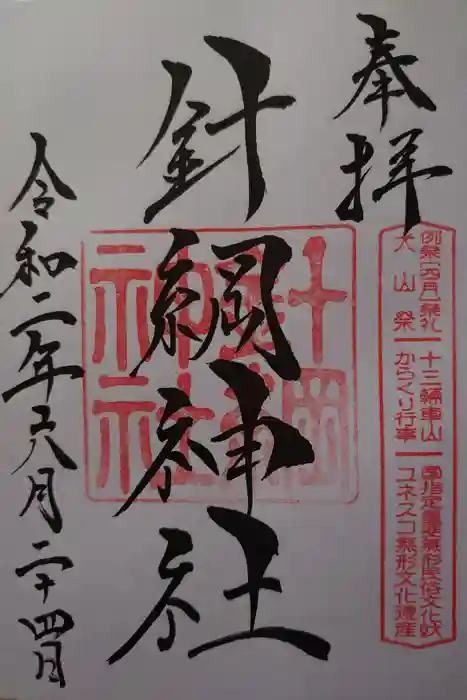 奉拝
例祭[四月]祭礼 十三輛車山 国指定重要無形民俗文化財
犬山祭 からくり行事 ユネスコ無形文化遺産
針綱神社
針綱
神社
令和二年六月二十四日